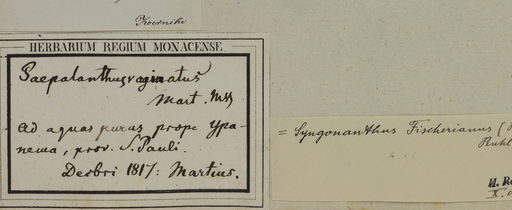 Koernike
HERBARIUM REGIUM MONACENSE.
Paepalanthus vaginatus
Mart. Mss
ad aquas puras prope Ypa-
nema, prov. S. Pauli.
Decbri 1817: Martius.
= Syngonanthus Fischerianus (
Ruhl
H. Ro